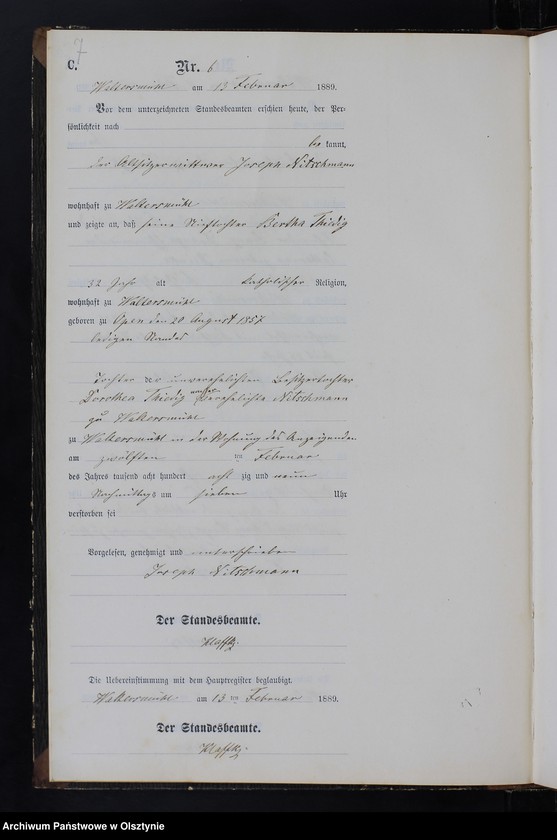 7
C.
Nr. 6
Woltersmühl am 13 Februar 1889.
Vor dem unterzeichneten Standesbeamten erschien heute, der Per-
sönlichkeit nach
be kannt,
der Altsitzerwittwer Joseph Nitschmann
wohnhaft zu Woltersmühl
und zeigte an, daß seine Stieftochter Bertha Thidig
32 Jahr alt katholischer Religion,
wohnhaft zu Woltersmühl
geboren zu Open den 20 August 1857
ledigen Standes
Tochter der unverehelichten Besitzertochter
Dorothea Thidig verehelichte Nitschmann
zu Woltersmühl
zu Woltersmühl in der Wohnung des Anzeigenden
am zwölften ten Februar
des Jahres tausend acht hundert acht zig und neun
Nachmittags um sieben Uhr
verstorben sei
Vorgelesen, genehmigt und unterschrieben
Joseph Nitschmann
Der Standesbeamte.
Klaffky.
Die Uebereinstimmung mit dem Hauptregister beglaubigt.
Woltersmühl am 13 ten Februar 1889.
Der Standesbeamte.
Klaffky.
Archiwum Państwowe w Olsztynie